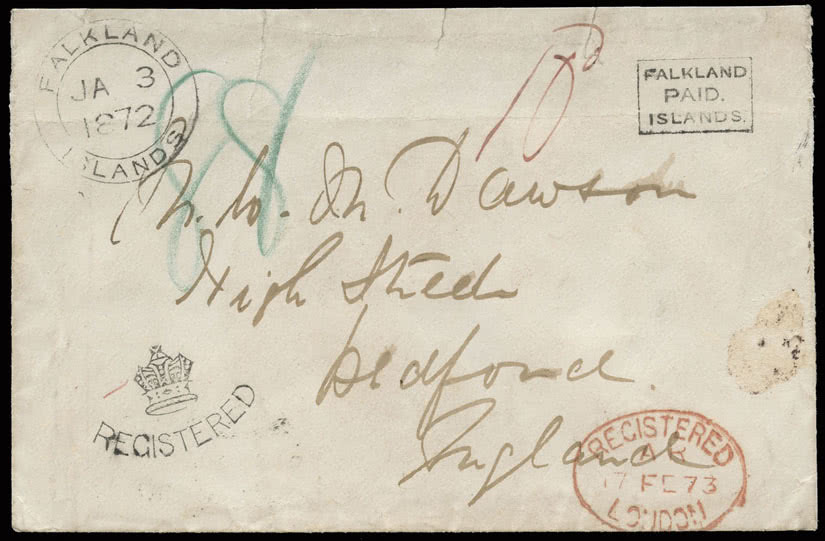 FALKLAND ISLANDS
JA 3
1872
88
10d
FALKLAND
PAID.
ISLANDS.
W. M. Dawson
High Street
Bedford.
England
REGISTERED
REGISTERED
AR
17 FE 73
LONDON